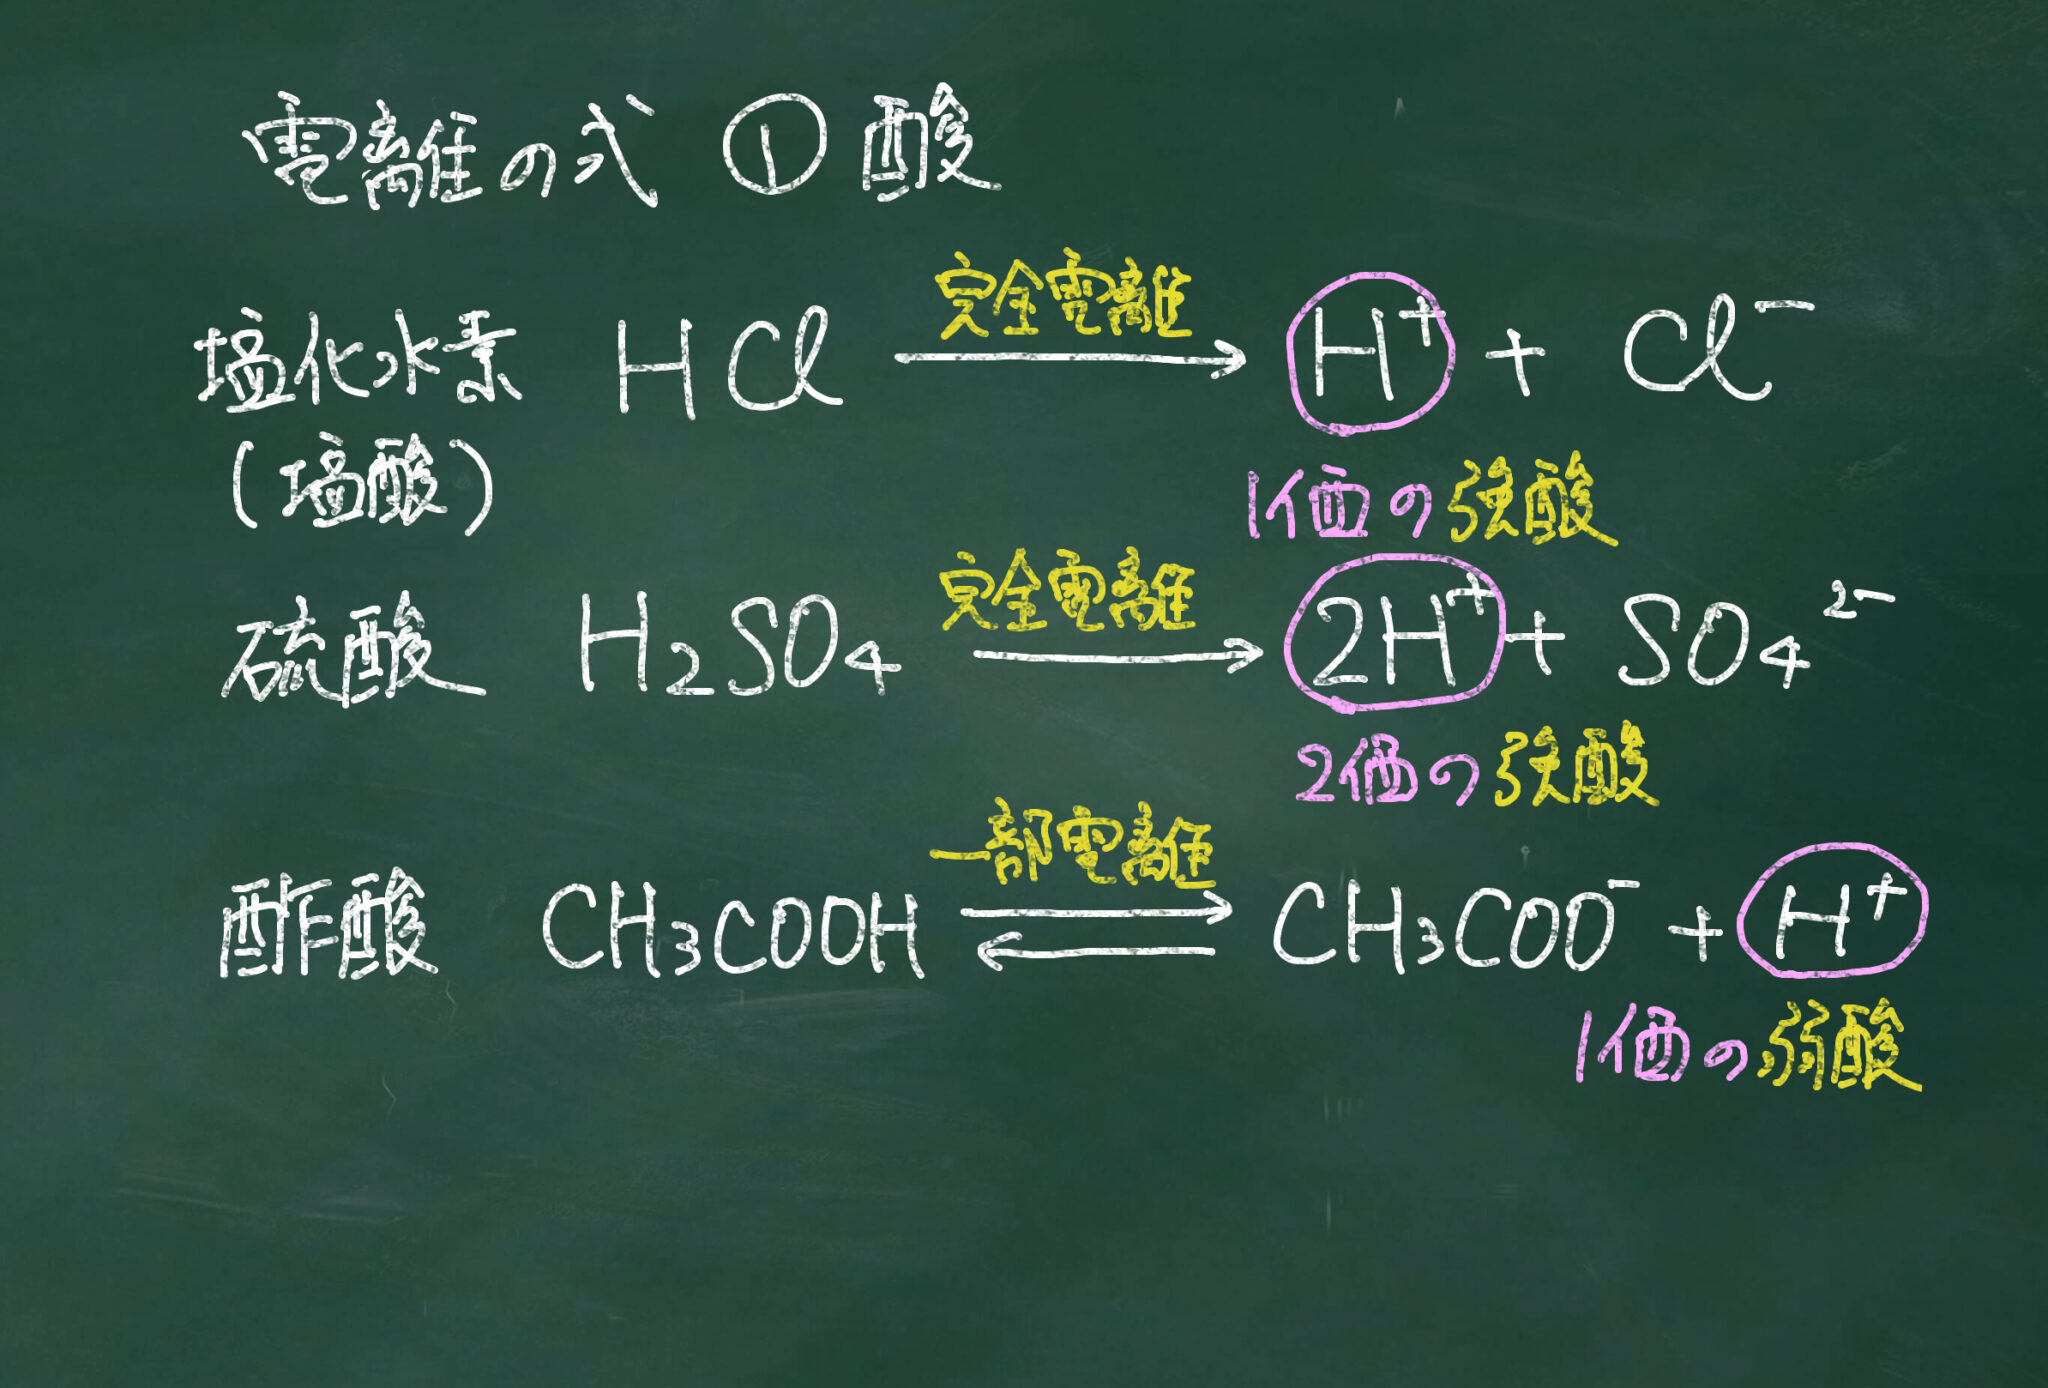 電離の式 ① 酸
塩化水素 HCl 完全電離 → H⁺ + Cl⁻
(塩酸)
1価の強酸
硫酸 H₂SO₄ 完全電離 → 2H⁺ + SO₄²⁻
2価の強酸
酢酸 CH₃COOH 一部電離 ⇄ CH₃COO⁻ + H⁺
1価の弱酸